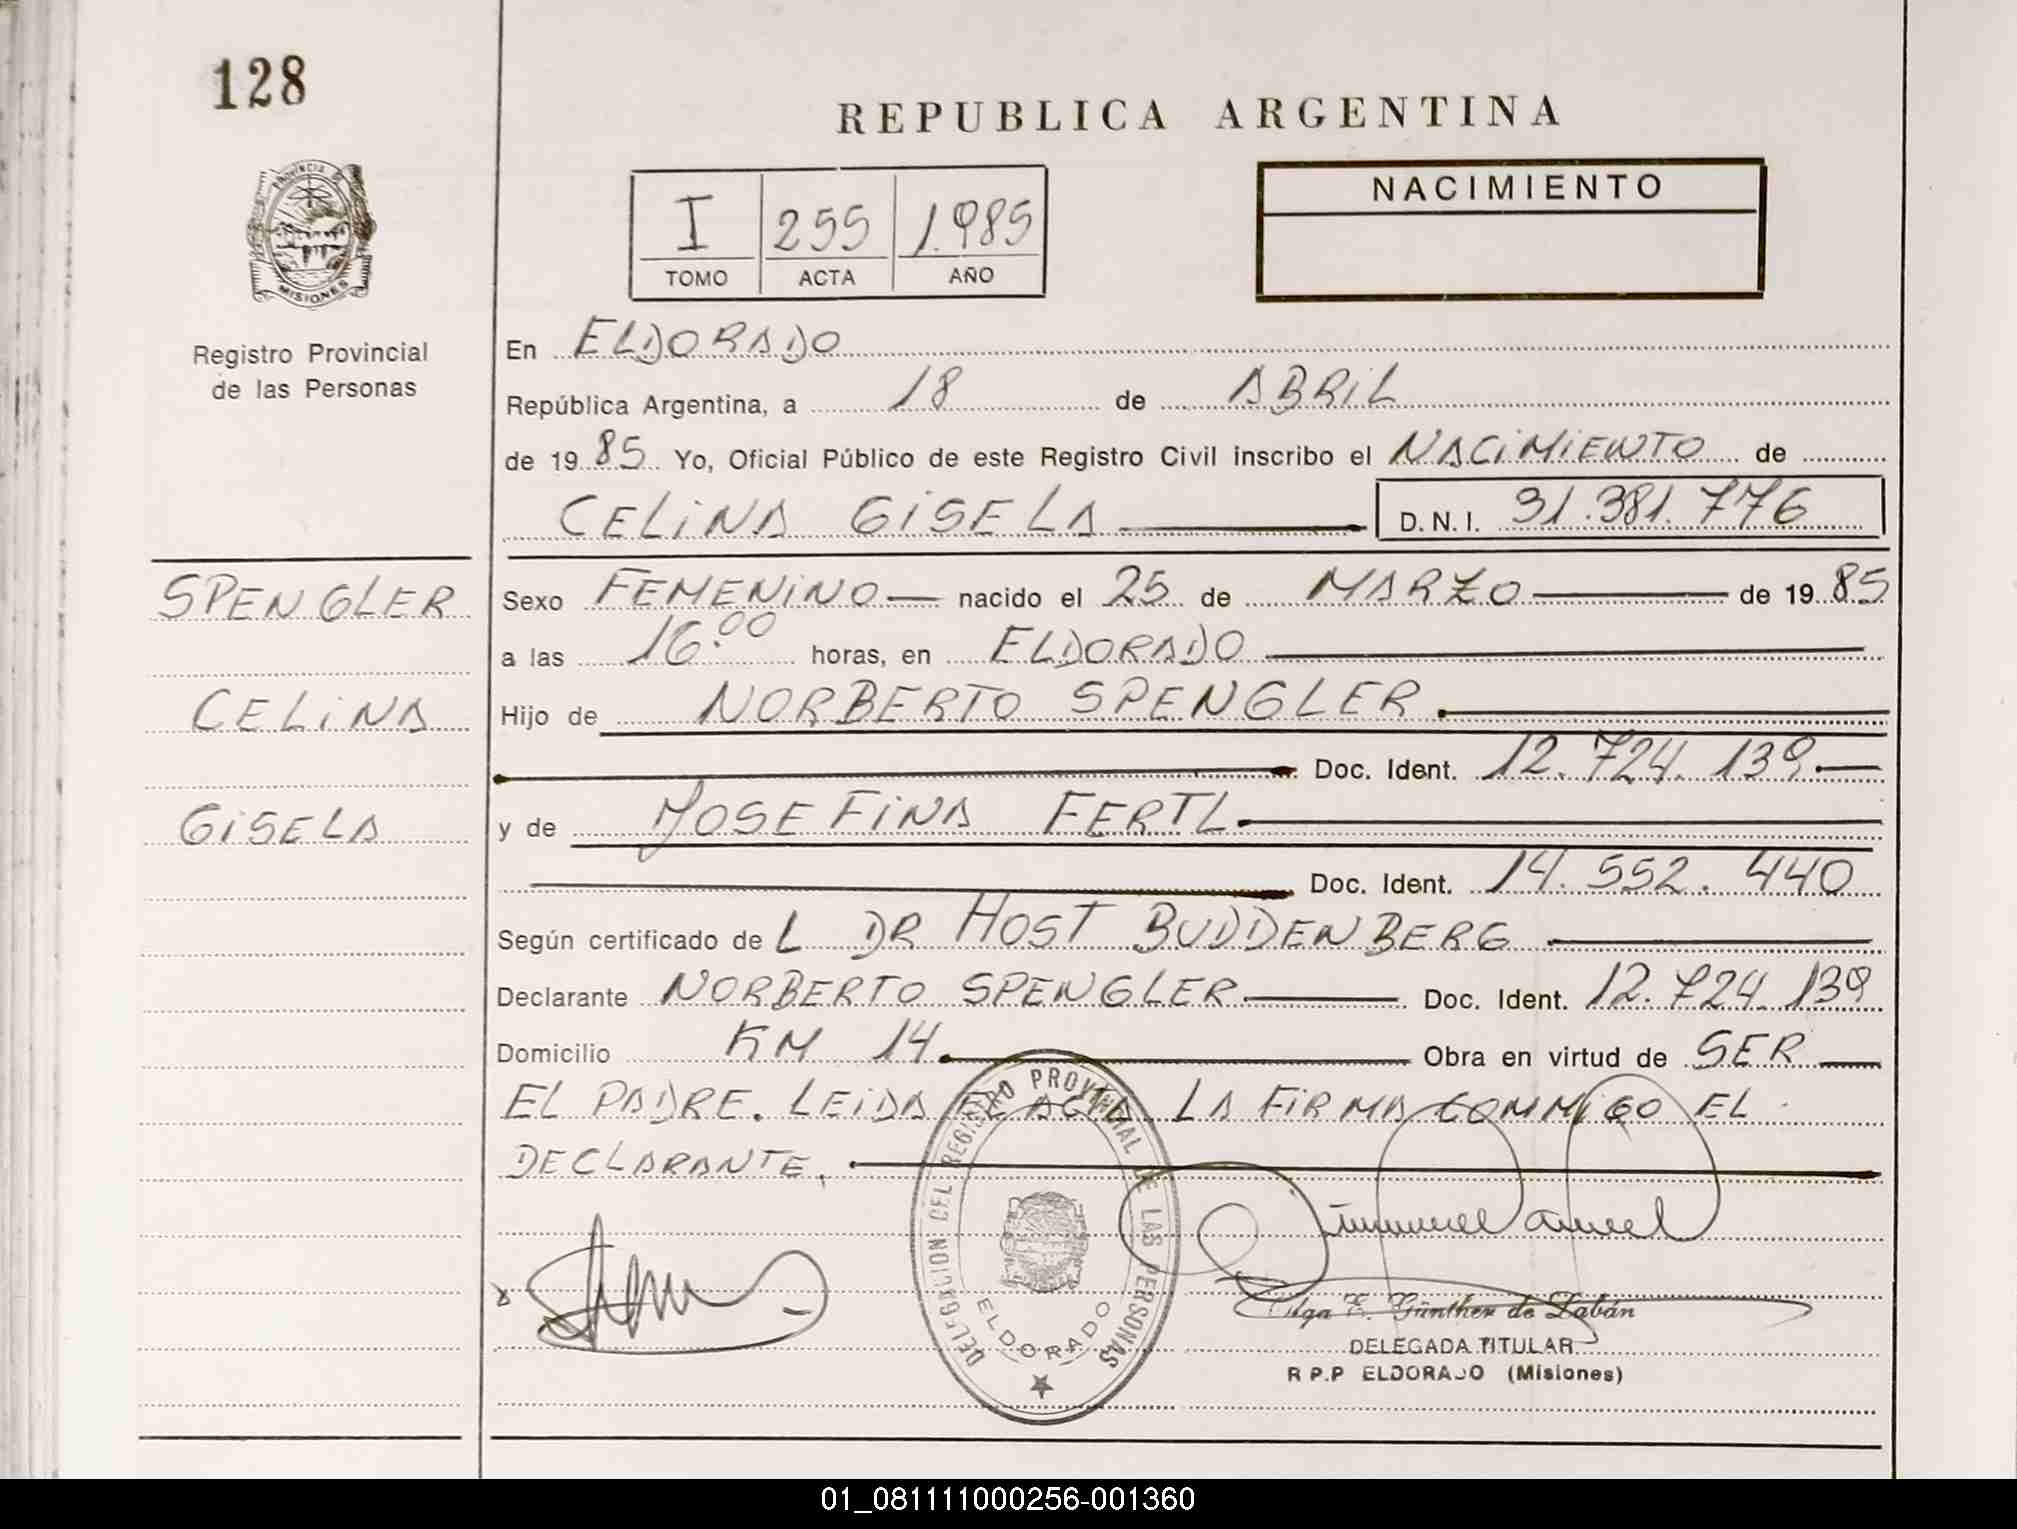 128
REPUBLICA ARGENTINA
PROVINCIA DE
MISIONES
I 255 1.985
TOMO ACTA AÑO
NACIMIENTO
Registro Provincial
de las Personas
En ELDORADO
República Argentina, a 18 de ABRIL
de 1985 Yo, Oficial Público de este Registro Civil inscribo el NACIMIENTO de
CELINA GISELA D.N.I. 31.381.776
SPENGLER
CELINA
GISELA
Sexo FEMENINO nacido el 25 de MARZO de 1985
a las 16.00 horas, en ELDORADO
Hijo de NORBERTO SPENGLER
Doc. Ident. 12.724.139
y de JOSEFINA FERTL
Doc. Ident. 14.552.440
Según certificado de L DR HOST BUDDENBERG
Declarante NORBERTO SPENGLER Doc. Ident. 12.724.139
Domicilio KM 14 Obra en virtud de SER
EL PADRE. LEIDA EL ACTA LA FIRMA CONMIGO EL
DECLARANTE.
DELEGACION DEL REGISTRO PROVINCIAL DE LAS PERSONAS
ELDORADO
Günther de Labán
DELEGADA TITULAR
R P.P ELDORADO (Misiones)
01_081111000256-001360